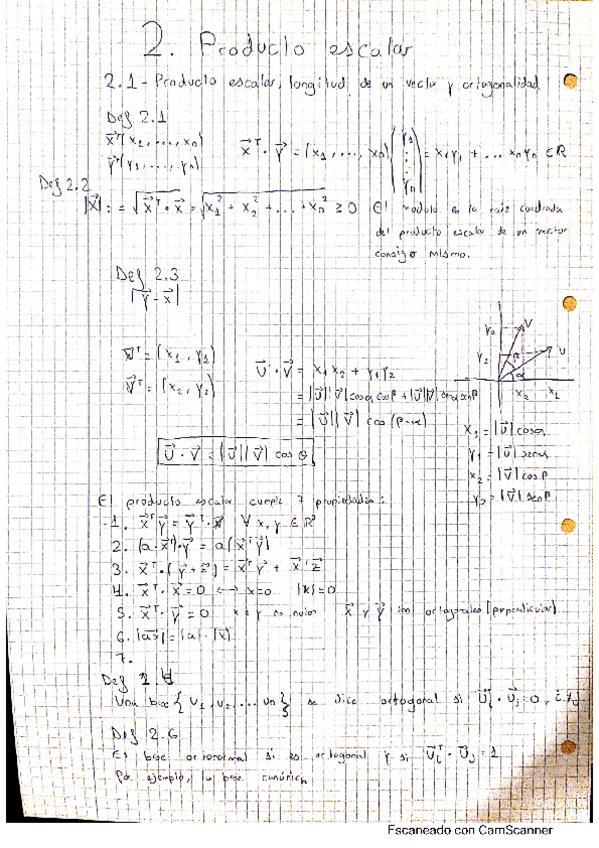 2. Producto escalar
2.1- Producto escalar, longitud de un vector y ortogonalidad
Def 2.1
x⃗ᵀ(x₁, ..., xn)
y⃗ᵀ(y₁, ..., yn)
x⃗ᵀ · y⃗ = (x₁, ..., xn) (y₁ ⋮ yn) = x₁y₁ + ... xnyn ∈ ℝ
Def 2.2
|x⃗| := √(x⃗ᵀ · x⃗) = √(x₁² + x₂² + ... + xn²) ≥ 0 El modulo es la raiz cuadrada
del producto escalar de un vector
consigo mismo.
Def 2.3
|y⃗ - x⃗|
y₂ V
y₁ β U
α
x₂ x₁
u⃗ᵀ = (x₁, y₁)
v⃗ᵀ = (x₂, y₂)
u⃗ · v⃗ = x₁x₂ + y₁y₂
= |u⃗||v⃗| cosα cosβ + |u⃗||v⃗| senα senβ
= |u⃗||v⃗| cos(β-α)
u⃗ · v⃗ = |u⃗||v⃗| cos θ
x₁ = |u⃗| cosα
y₁ = |u⃗| senα
x₂ = |v⃗| cosβ
y₂ = |v⃗| senβ
El producto escalar cumple 7 propiedades:
1. x⃗ᵀ y⃗ = y⃗ᵀ · x⃗ ∀ x, y ∈
2. (a·x⃗ᵀ)·y⃗ = a(x⃗ᵀ y⃗)
3. x⃗ᵀ·(y⃗ + z⃗) = x⃗ᵀ y⃗ + x⃗ᵀ z⃗
4. x⃗ᵀ · x⃗ = 0 ↔ x=0 |x|=0
5. x⃗ᵀ · y⃗ = 0 x e y no nulos x⃗ y y⃗ son ortogonales (perpendicular)
6. |ax⃗| = |a| · |x⃗|
7.
Def
Una base {u₁, u₂, ... un} se dice ortogonal si u⃗ᵢᵀ · u⃗ⱼ = 0, i≠j
Def 2.6
Es base ortonormal si es ortogonal y si u⃗ᵢᵀ · u⃗ⱼ = 1
Por ejemplo, la base canónica
Escaneado con CamScanner